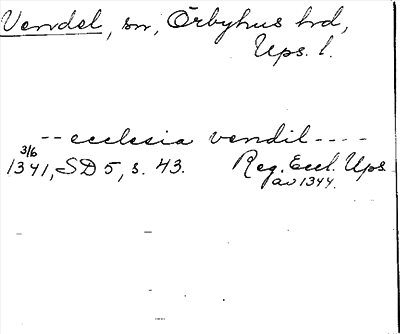 Vendel, sn, Örbyhus hd,
Ups. l.
-- ecclesia vendil ----
3/6
1341, SD 5, s. 43. Reg. Eccl. Ups
av 1344.